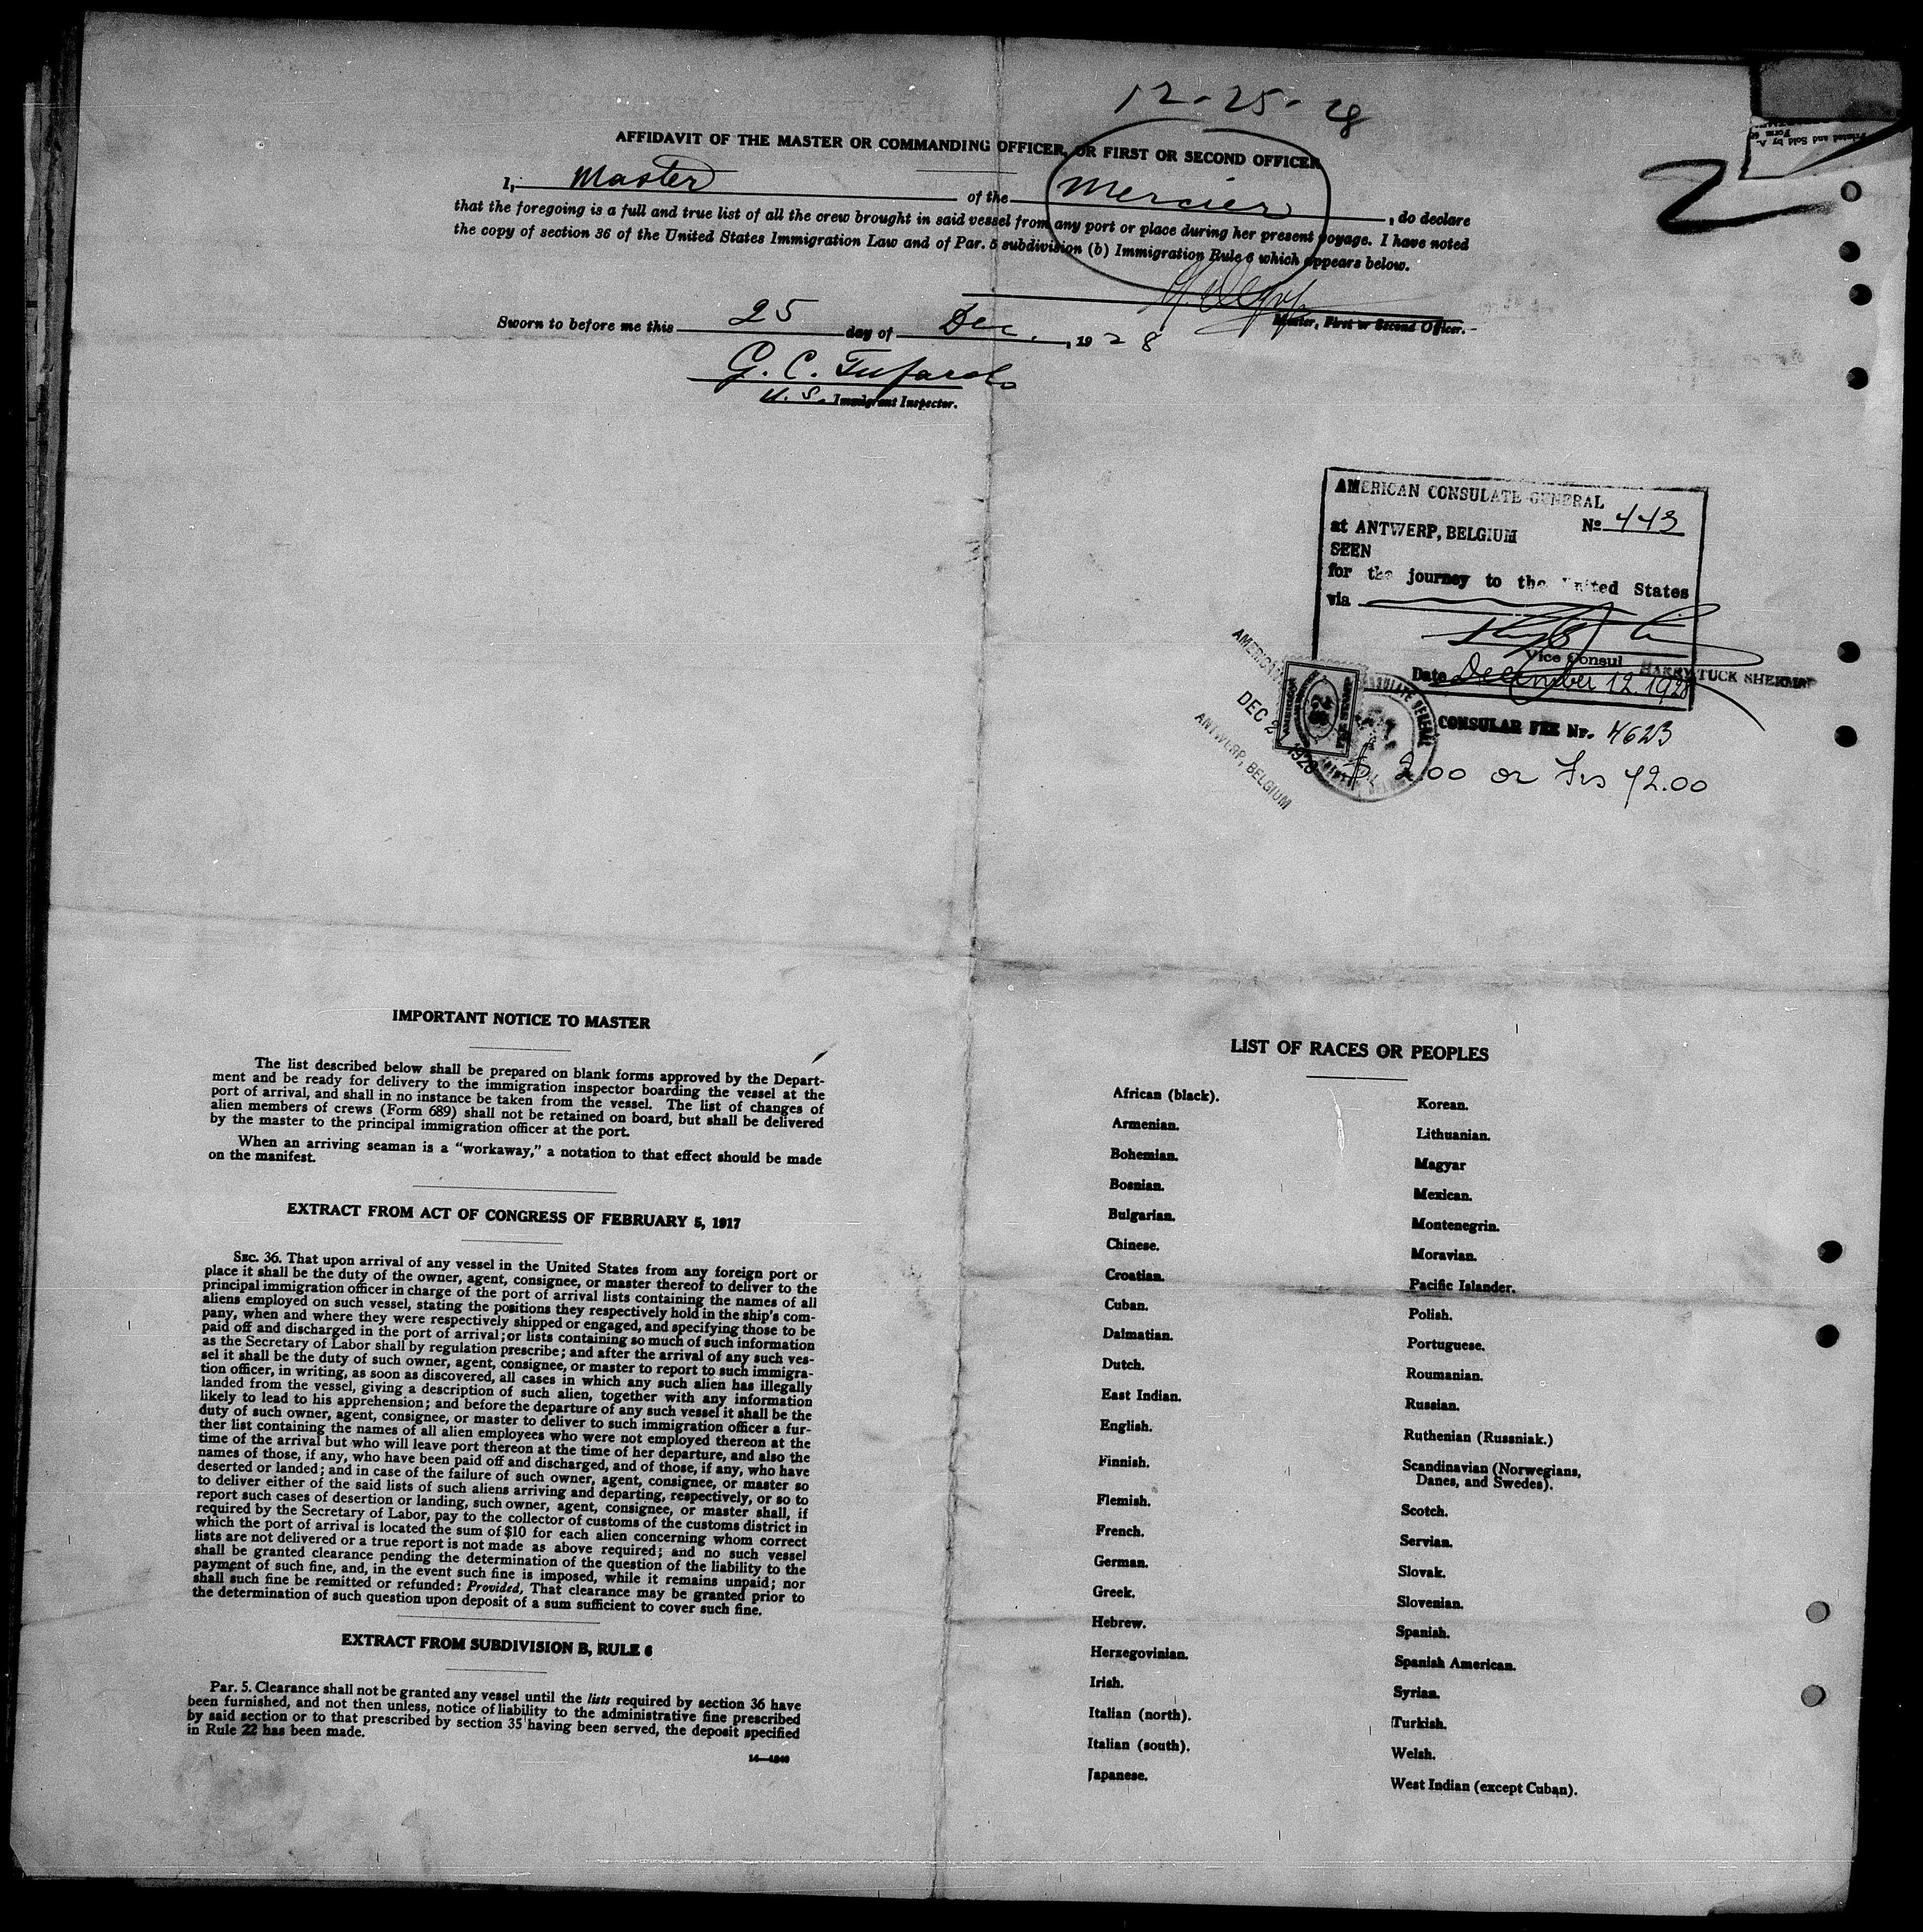 12-25-28
AFFIDAVIT OF THE MASTER OR COMMANDING OFFICER, OR FIRST OR SECOND OFFICER
I, Master of the Mercier, do declare
that the foregoing is a full and true list of all the crew brought in said vessel from any port or place during her present voyage. I have noted
the copy of section 36 of the United States Immigration Law and of Par. 5 subdivision (b) Immigration Rule 6 which appears below.
Master, First or Second Officer.
Sworn to before me this 25 day of Dec., 1928
G. C. Tufarolo
U. S. Immigrant Inspector.
2
Printed and Sold by
Form
AMERICAN CONSULATE GENERAL
at ANTWERP, BELGIUM No 443
SEEN
for the journey to the United States
via
Vice Consul
HARRY TUCK SHERMAN
Date December 12 1928
CONSULAR FEE Nr. 4623
$ 2.00 or Frs 72.00
AMERICAN
DEC 2 1928
ANTWERP, BELGIUM
IMPORTANT NOTICE TO MASTER
The list described below shall be prepared on blank forms approved by the Depart-
ment and be ready for delivery to the immigration inspector boarding the vessel at the
port of arrival, and shall in no instance be taken from the vessel. The list of changes of
alien members of crews (Form 689) shall not be retained on board, but shall be delivered
by the master to the principal immigration officer at the port.
When an arriving seaman is a "workaway," a notation to that effect should be made
on the manifest.
EXTRACT FROM ACT OF CONGRESS OF FEBRUARY 5, 1917
SEC. 36. That upon arrival of any vessel in the United States from any foreign port or
place it shall be the duty of the owner, agent, consignee, or master thereof to deliver to the
principal immigration officer in charge of the port of arrival lists containing the names of all
aliens employed on such vessel, stating the positions they respectively hold in the ship's com-
pany, when and where they were respectively shipped or engaged, and specifying those to be
paid off and discharged in the port of arrival; or lists containing so much of such information
as the Secretary of Labor shall by regulation prescribe; and after the arrival of any such ves-
sel it shall be the duty of such owner, agent, consignee, or master to report to such immigra-
tion officer, in writing, as soon as discovered, all cases in which any such alien has illegally
landed from the vessel, giving a description of such alien, together with any information
likely to lead to his apprehension; and before the departure of any such vessel it shall be the
duty of such owner, agent, consignee, or master to deliver to such immigration officer a fur-
ther list containing the names of all alien employees who were not employed thereon at the
time of the arrival but who will leave port thereon at the time of her departure, and also the
names of those, if any, who have been paid off and discharged, and of those, if any, who have
deserted or landed; and in case of the failure of such owner, agent, consignee, or master so
to deliver either of the said lists of such aliens arriving and departing, respectively, or so to
report such cases of desertion or landing, such owner, agent, consignee, or master shall, if
required by the Secretary of Labor, pay to the collector of customs of the customs district in
which the port of arrival is located the sum of $10 for each alien concerning whom correct
lists are not delivered or a true report is not made as above required; and no such vessel
shall be granted clearance pending the determination of the question of the liability to the
payment of such fine, and, in the event such fine is imposed, while it remains unpaid; nor
shall such fine be remitted or refunded: Provided, That clearance may be granted prior to
the determination of such question upon deposit of a sum sufficient to cover such fine.
EXTRACT FROM SUBDIVISION B, RULE 6
Par. 5. Clearance shall not be granted any vessel until the lists required by section 36 have
been furnished, and not then unless, notice of liability to the administrative fine prescribed
by said section or to that prescribed by section 35 having been served, the deposit specified
in Rule 22 has been made.
LIST OF RACES OR PEOPLES
African (black).
Armenian.
Bohemian.
Bosnian.
Bulgarian.
Chinese.
Croatian.
Cuban.
Dalmatian.
Dutch.
East Indian.
English.
Finnish.
Flemish.
French.
German.
Greek.
Hebrew.
Herzegovinian.
Irish.
Italian (north).
Italian (south).
Japanese.
Korean.
Lithuanian.
Magyar
Mexican.
Montenegrin.
Moravian.
Pacific Islander.
Polish.
Portuguese.
Roumanian.
Russian.
Ruthenian (Russniak.)
Scandinavian (Norwegians,
Danes, and Swedes).
Scotch.
Servian.
Slovak.
Slovenian.
Spanish.
Spanish American.
Syrian.
Turkish.
Welsh.
West Indian (except Cuban).